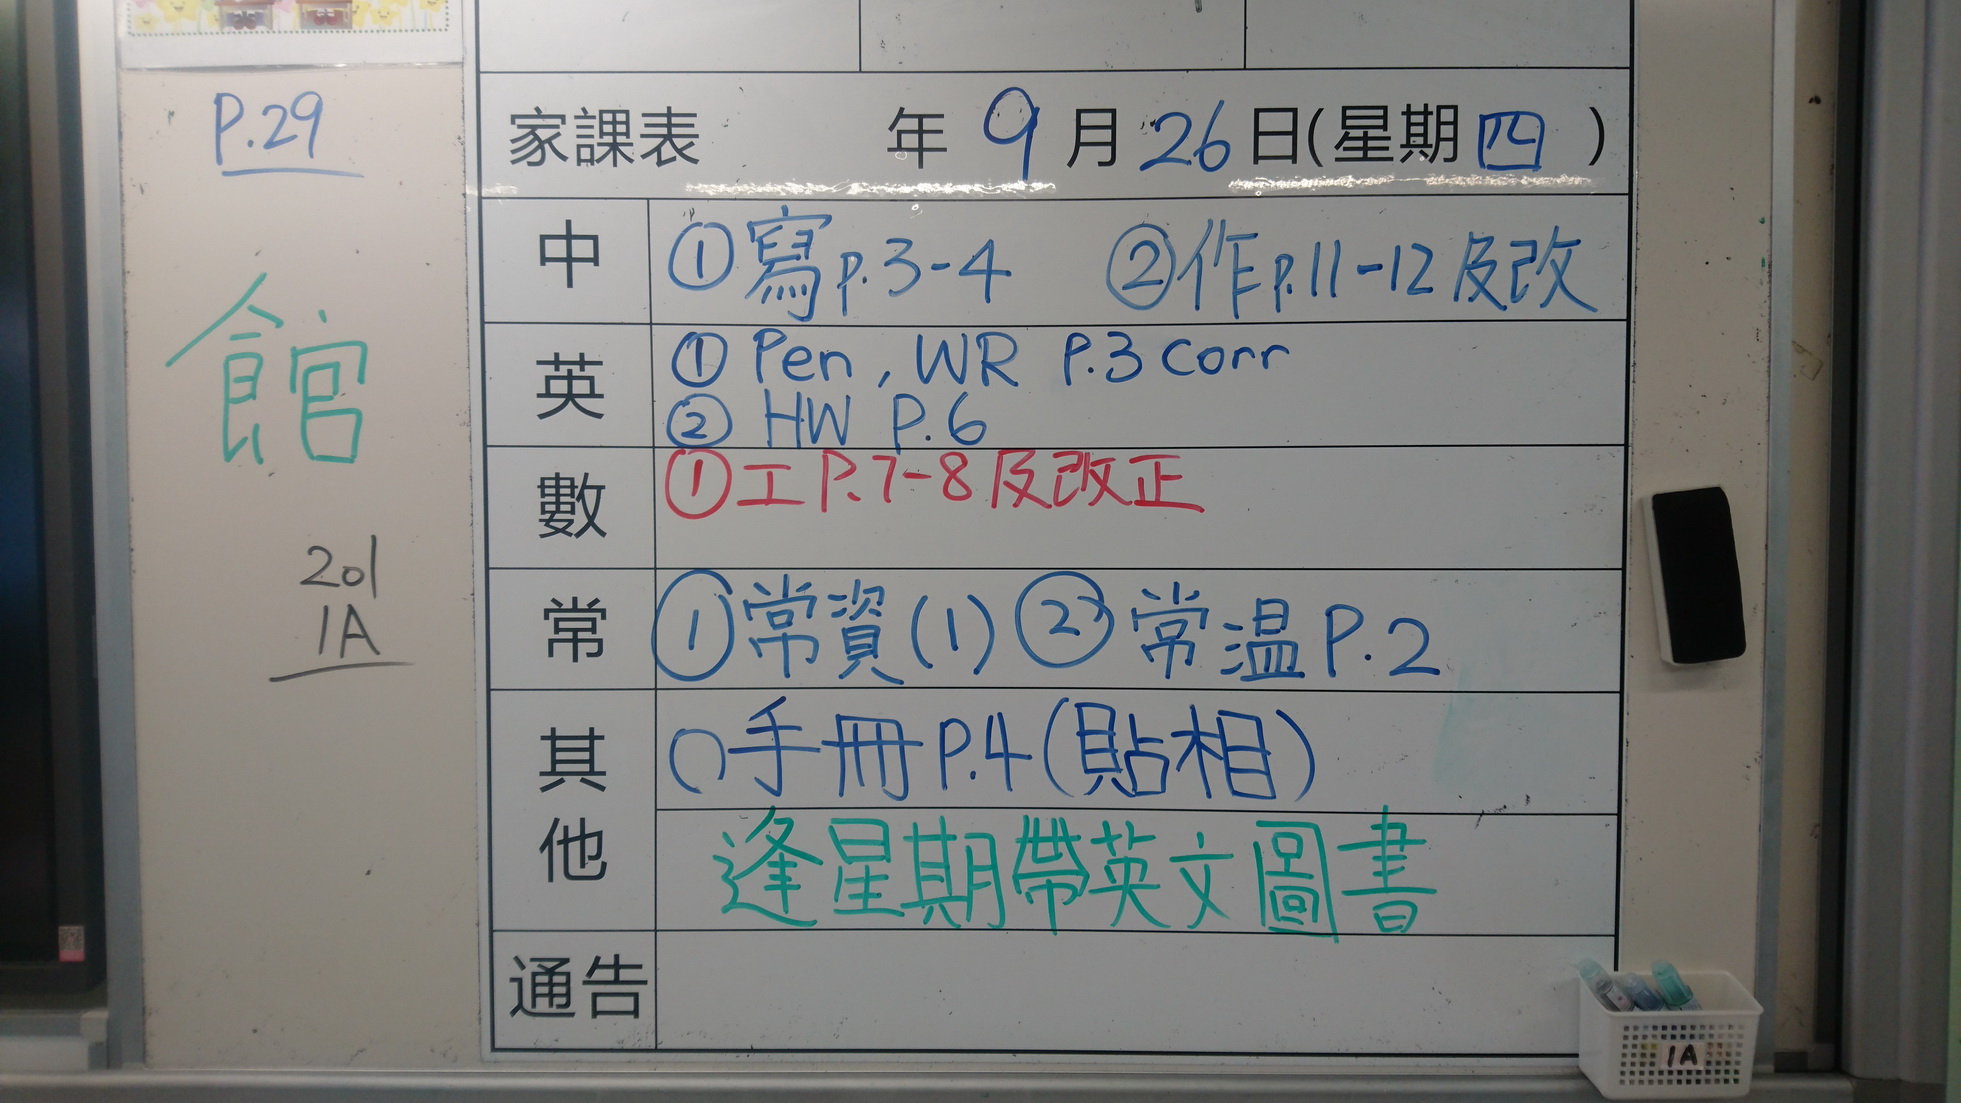 P.29
館
201
1A
家課表 年 9 月 26 日(星期 四 )
中 ①寫p.3-4 ②作p.11-12及改
英 ① Pen, WR P.3 corr
② HW P.6
數 ①工P.7-8及改正
常 ①常資(1) ②常温P.2
其他 ○手冊P.4(貼相)
逢星期帶英文圖書
通告
1A